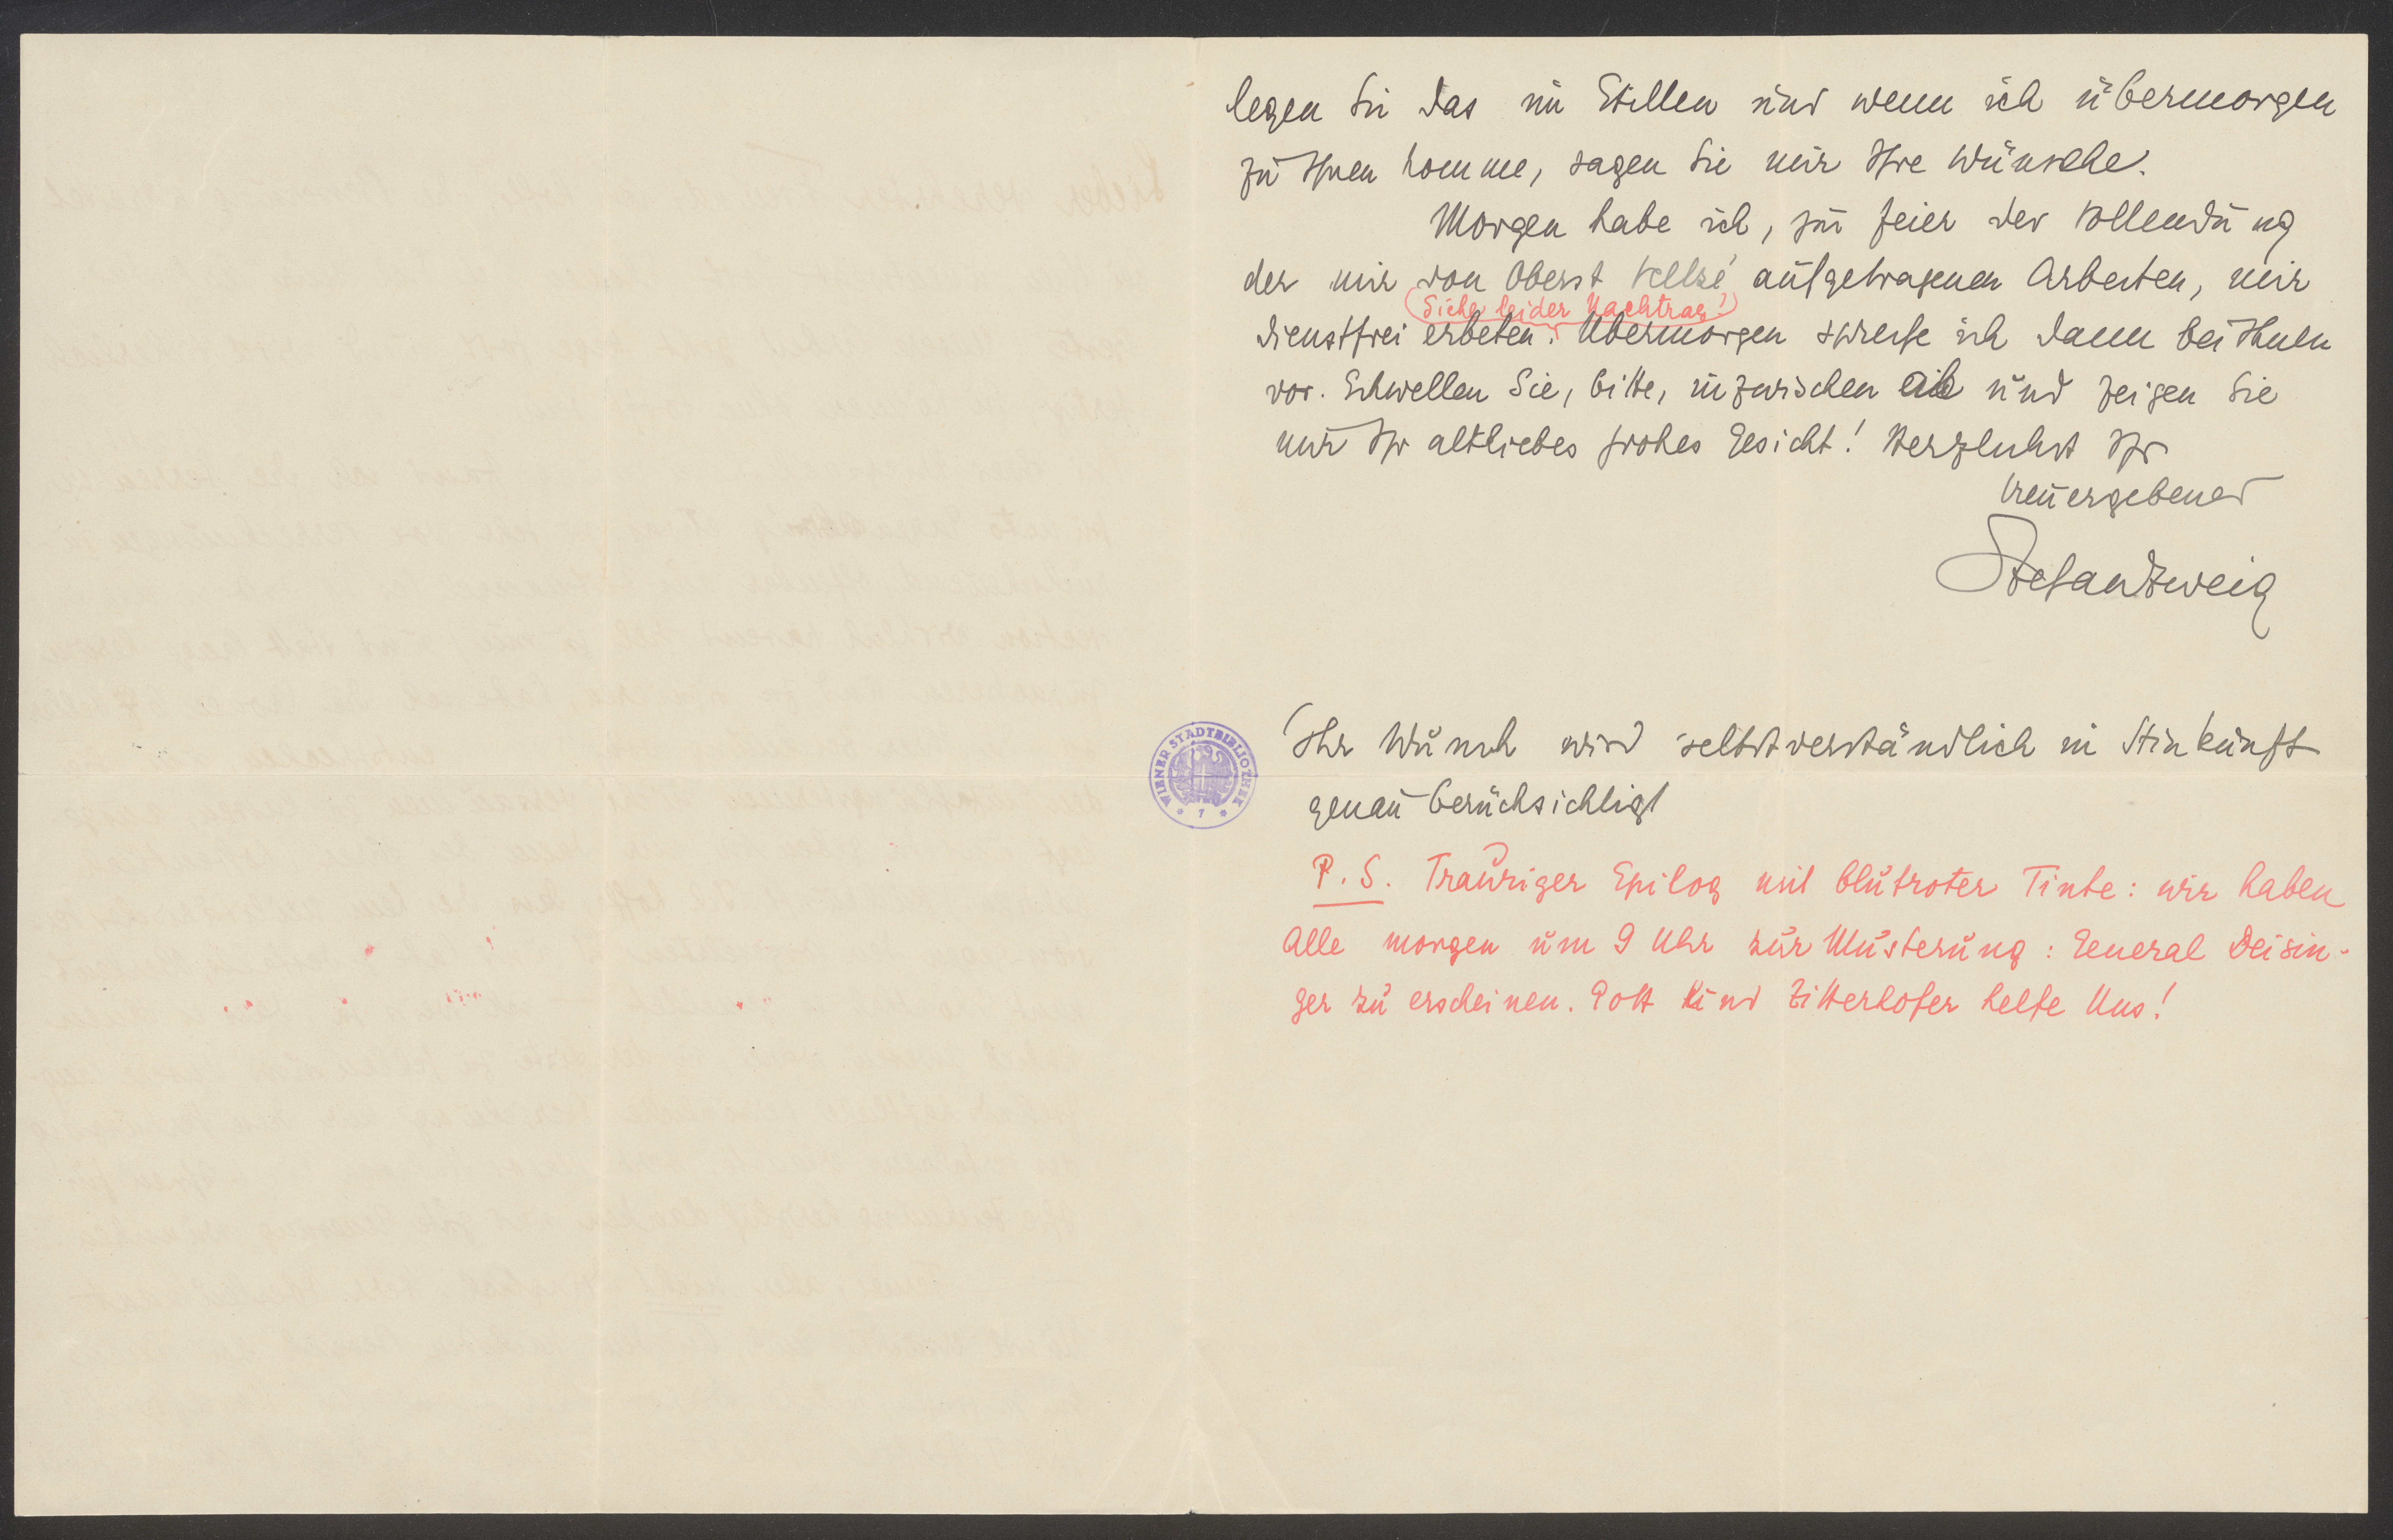 legen Sie das im Stillen und wenn ich übermorgen
zu Ihnen komme, sagen Sie mir Ihre Wünsche.
Morgen habe ich, zur Feier der Vollendung
der mir von Oberst Veltzé aufgetragenen Arbeiten, mir
(Siehe leider Nachtrag!)
dienstfrei erbeten. Übermorgen spreche ich dann bei Ihnen
vor. Schwellen Sie, bitte, inzwischen ab und zeigen Sie
mir Ihr altliebes frohes Gesicht! Herzlichst Ihr
treuergebener
Stefan Zweig
WIENER STADTBIBLIOTHEK
* 7 *
Ihr Wunsch wird selbstverständlich in Hinkunft
genau berücksichtigt
P.S. Trauriger Epilog mit blutroter Tinte: wir haben
Alle morgen um 9 Uhr zur Musterung: General Deisin-
ger zu erscheinen. Gott und Zitterhofer helfe Uns!